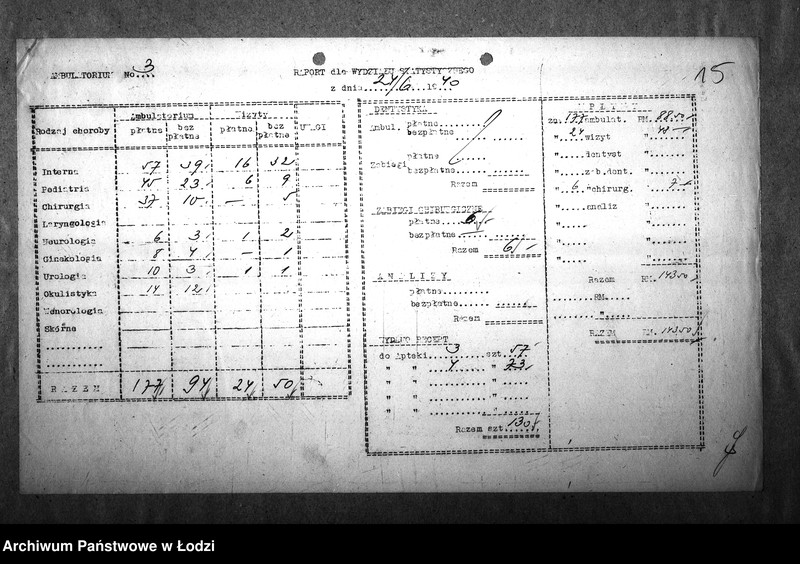 AMBULATORIUM No 3
RAPORT dla WYDZIAŁU STATYSTYCZNEGO
z dnia 24/6 1940
15
Rodzaj choroby
Ambulatorium
Wizyty
ULGI
płatne
bez płatne
płatne
bez płatne
Interna 57 39 16 32
Pediatria 45 23 6 9
Chirurgia 37 10 — 5
Laryngologia
Neurologia 6 3 1 2
Ginekologia 8 4 — 1
Urologia 10 3 1 1
Okulistyka 14 12
Wenerologia
Skórne
RAZEM 177 94 24 50
DENTYSTYKA
Ambul. płatne
bezpłatne
Zabiegi płatne
bezpłatne
Razem
ZABIEGI CHIRURGICZNE
płatne 6
bezpłatne
Razem 6
ANALIZY
płatne
bezpłatne
Razem
WYDANO RECEPT
do Apteki 3 szt. 57
" " 4 " 73
" " "
" " "
Razem szt. 130
za 177 ambulat. RM. 88.50
" 24 wizyt " 48
" dentyst "
" zab.dent. "
" 6 chirurg. " 7
" analiz "
" "
" "
Razem RM. 143.50
RM.
"
RAZEM RM. 143.50
Archiwum Państwowe w Łodzi